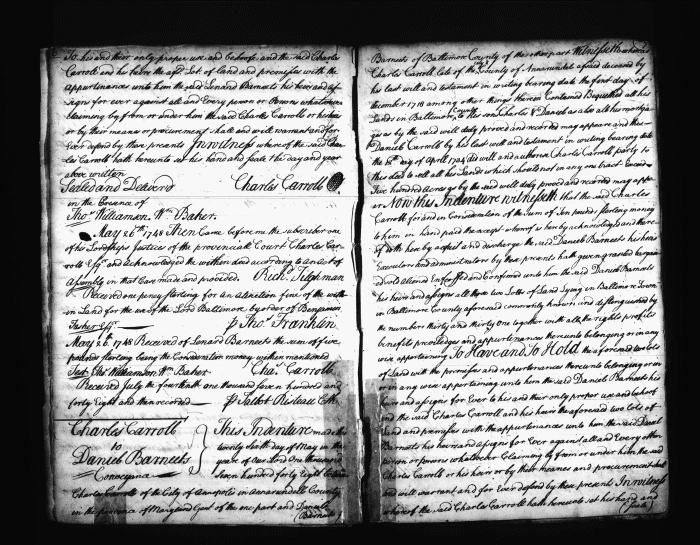 To his and their only proper use and behoofe and the said Charles
Carroll and his heirs the afd. Lot of land and premises with the
appurtenances unto him the said Lenard Barnets his heirs and as
signs for ever against all and Every person or Persons whatsoever
claiming by from or under him the said Charles Carroll or his heirs
or by their means or procurement shall and will warrant and for
Ever defend by these presents In witness whereof the said Char
les Carroll hath hereunto set his hand and seale the day and year
above written
Sealed and Deliver'd Charles Carroll
in the Presence of
Thos. Williamson. Wm. Baker.
May 26th 1748 Then Came before me the subscriber one
of his Lordships Justices of the provincial Court Charles Car
roll Esqr. and acknowledged the within deed according to an act of
assembly in that Case made and provided. Richd. Tilghman
Received one peney sterling for an alination fine of the with
in Land for the use of the Lord Baltimore by order of Benjamin
Tasker Esqr. p Thos. Franklin
May 26. 1748 Received of Lenard Barnets the sum of five
pounds sterling being the Consideration money within mentioned
Test Thos. Williamson. Wm. Baker Chas. Carroll
Received July the fourteenth one thousand seven hundred and
forty Eight and then recorded p Talbot Risteau Clk
Charles Carroll
to
Daniel Barnets
Conveyance
This Indenture made the
twenty sixth day of May in the
yeare of our Lord One thousand
Seven hundred forty Eight between
Charles Carroll of the City of Annapolis in Annarundell County
in the province of Maryland Gent of the one part and Daniel
(Barnets)
Barnets of Baltimore County of the other part Witnesseth whereas
Charles Carroll late of the County of Annarundel afsaid deceased by
his last will and testament in writing bearing date the first day of
december 1718 among other things therein Contained Bequeathed all his
Lands in Baltimore County to his son Charles & Daniel as also all his mortga
ges as by the said will duly proved and recorded may appear and the
Daniel Carroll by his last will and testament in writing bearing date
the day of April 1734 did will and authorize Charles Carroll party to
this deed to sell all his Lands which should not on any one tract Exceed
five hundred Acres as by the said will duly proved and recorded may appe
ar Now this Indenture witnesseth that the said Charles
Carroll for and in Consideration of the sum of Ten pounds sterling money
to him in hand paid the receipt whereof is hereby acknowledged and there
of doth hereby acquit and discharge the said Daniel Barnets his heirs
Executors and administrators by these presents hath given granted bargain
ed sold aliened Enfeoffed and Confirmed unto him the said Daniel Barnets
his heirs and assigns all those two Lotts of Land Lying in Baltimore Town
in Baltimore County aforesaid commonly known and distinguished by
the number thirty and thirty one together with all the rights profits
benefits priviledges and appurtenances thereunto belonging or in any
wise appertaining To Have and To Hold the aforesaid two Lots
of Land with the premises and appurtenances thereunto belonging or in
or in any wise appertaining unto him the said Daniel Barnets his
heirs and assigns for Ever to his and their only proper use and behoof
and the said Charles Carroll and his heirs the aforesaid two Lots of
Land and premises with the appurtenances unto him the said Daniel
Barnets his heirs and assigns for Ever against all and Every other
person or persons whatsoever Claiming by from or under him the said
Charles Carroll or his heirs or by their means and procurement shall
and will warrant and for Ever defend by these presents In witness
whereof the said Charles Carroll hath hereunto set his hand and
(Seale)